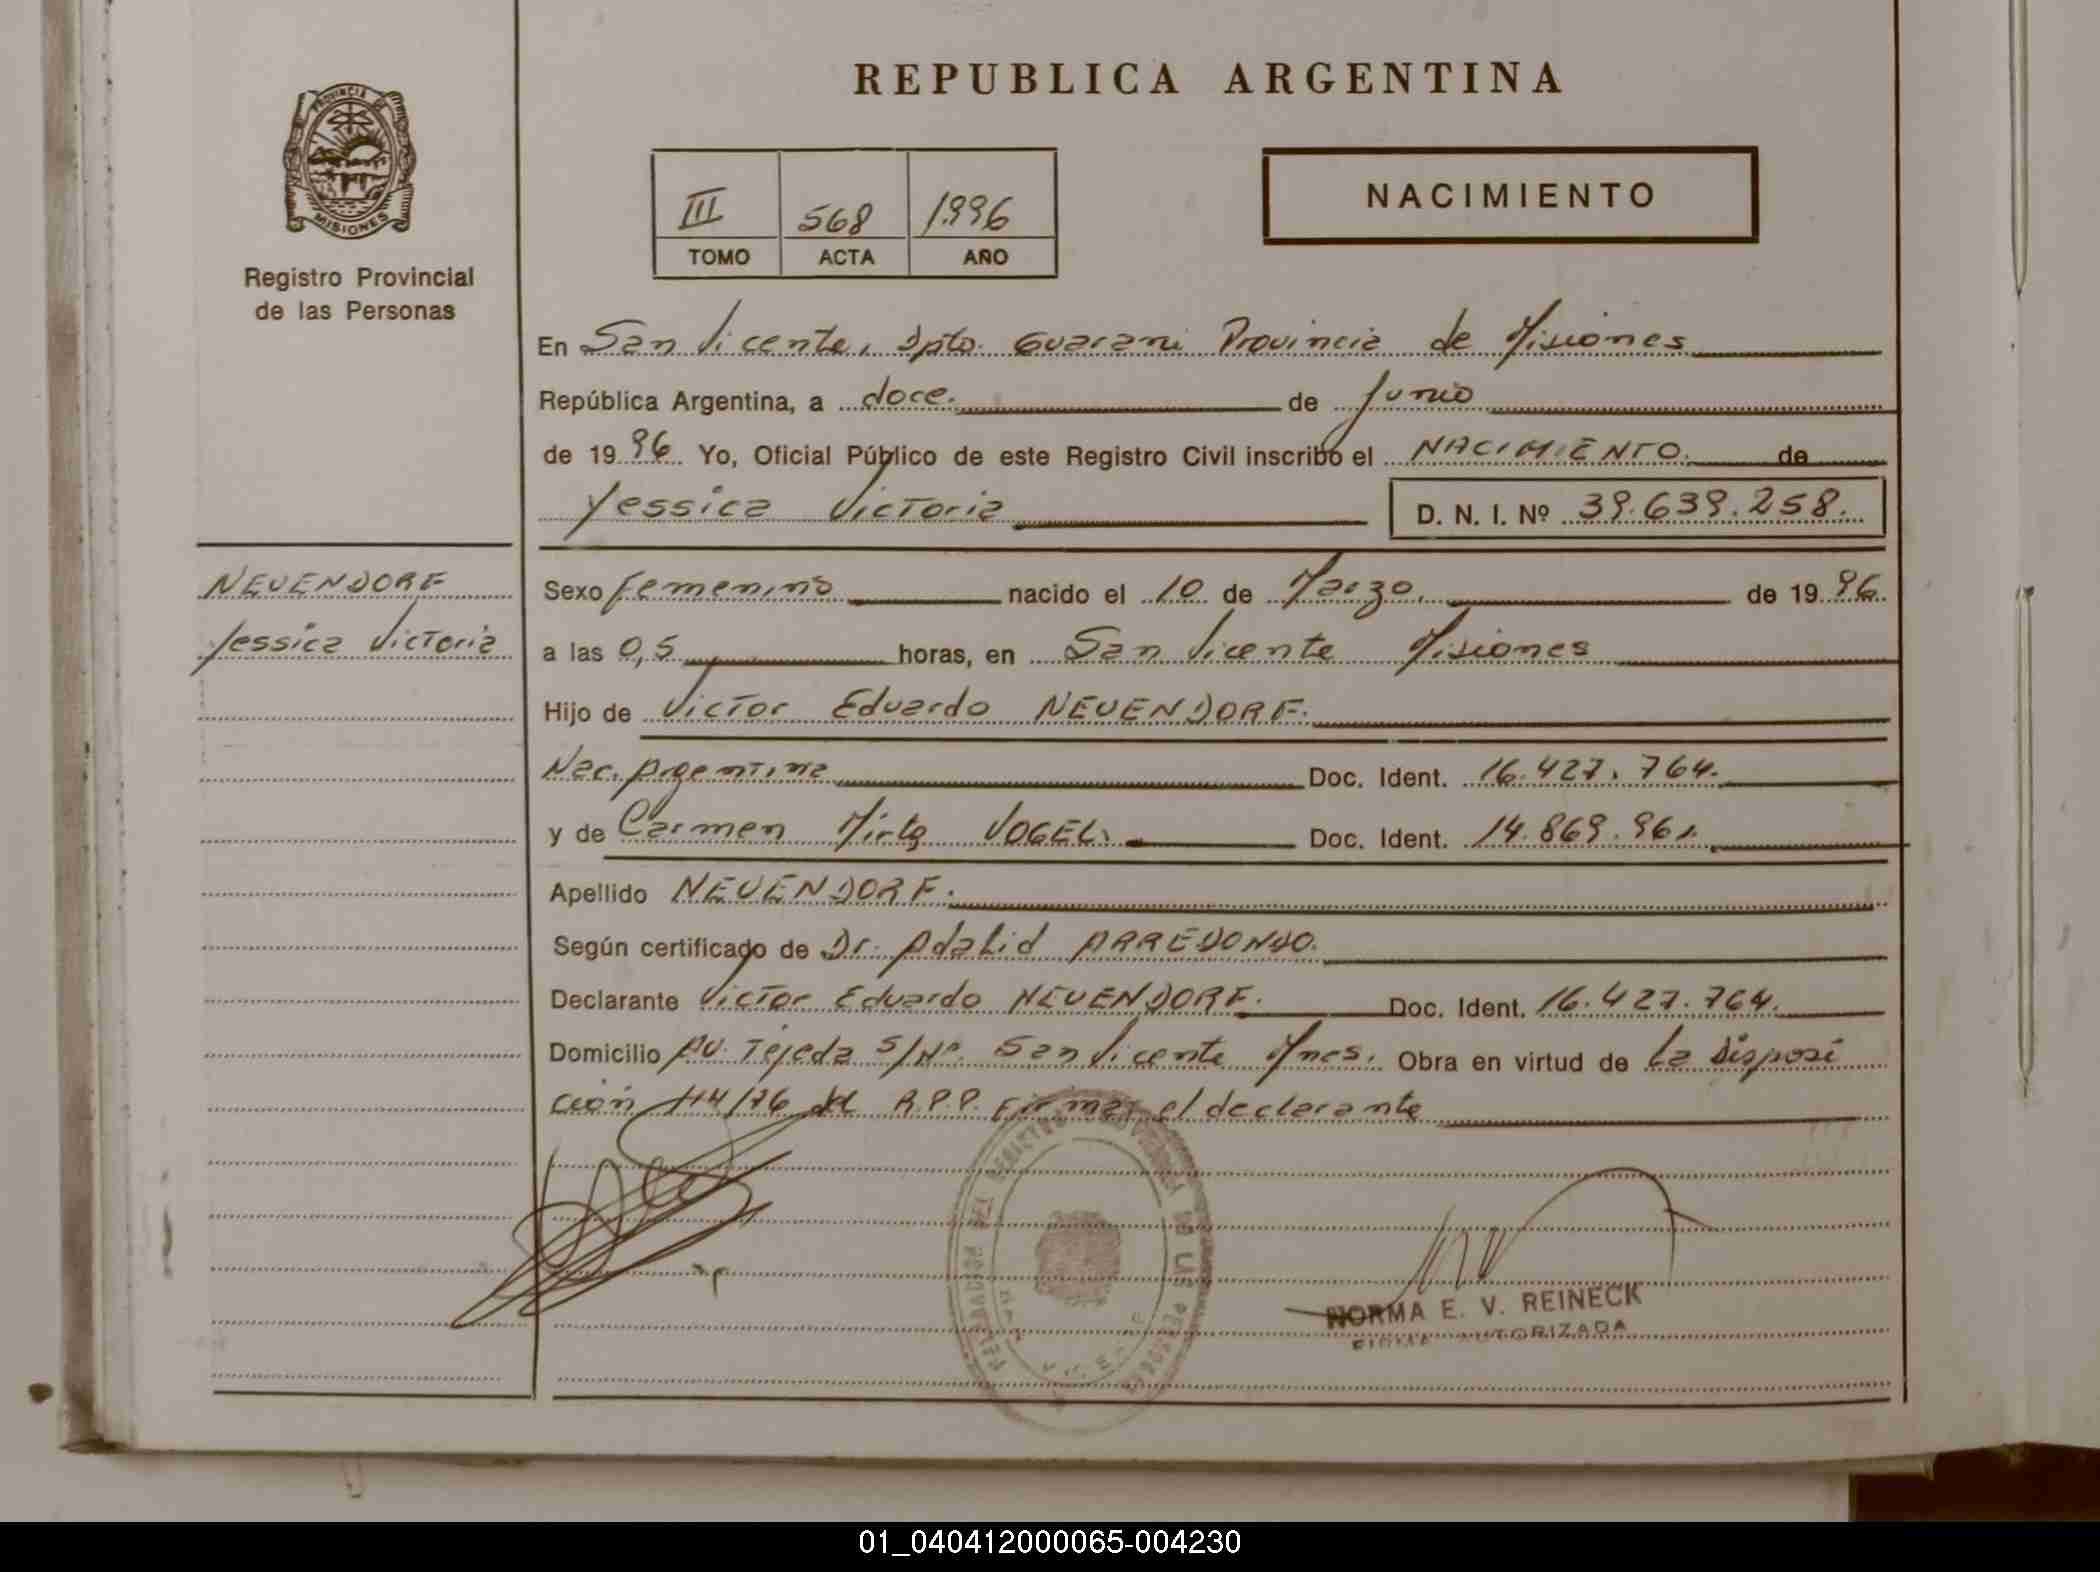 REPUBLICA ARGENTINA
PROVINCIA DE
MISIONES
Registro Provincial
de las Personas
III 568 1996
TOMO ACTA AÑO
NACIMIENTO
En San Vicente, Dpto. Guarani Provincia de Misiones
República Argentina, a doce. de Junio
de 1996 Yo, Oficial Público de este Registro Civil inscribo el NACIMIENTO. de
Yessica Victoria D. N. I. Nº 39.639.258.
NEUENDORF
Yessica Victoria
Sexo femenino nacido el 10 de Marzo. de 1996.
a las 0,5 horas, en San Vicente Misiones
Hijo de Victor Eduardo NEUENDORF.
Nac. Argentina Doc. Ident. 16.427.764.
y de Carmen Mirta VOGEL. Doc. Ident. 14.869.961.
Apellido NEUENDORF.
Según certificado de Dr. Adalid ARREDONDO.
Declarante Victor Eduardo NEUENDORF. Doc. Ident. 16.427.764.
Domicilio AV. Tejeda S/Nº. San Vicente Mnes. Obra en virtud de La Disposi
ción 114/76 del R.P.P. firmar el declarante
REGISTRO PROVINCIAL DE LAS PERSONAS
NORMA E. V. REINECK
FIRMA AUTORIZADA
01_040412000065-004230